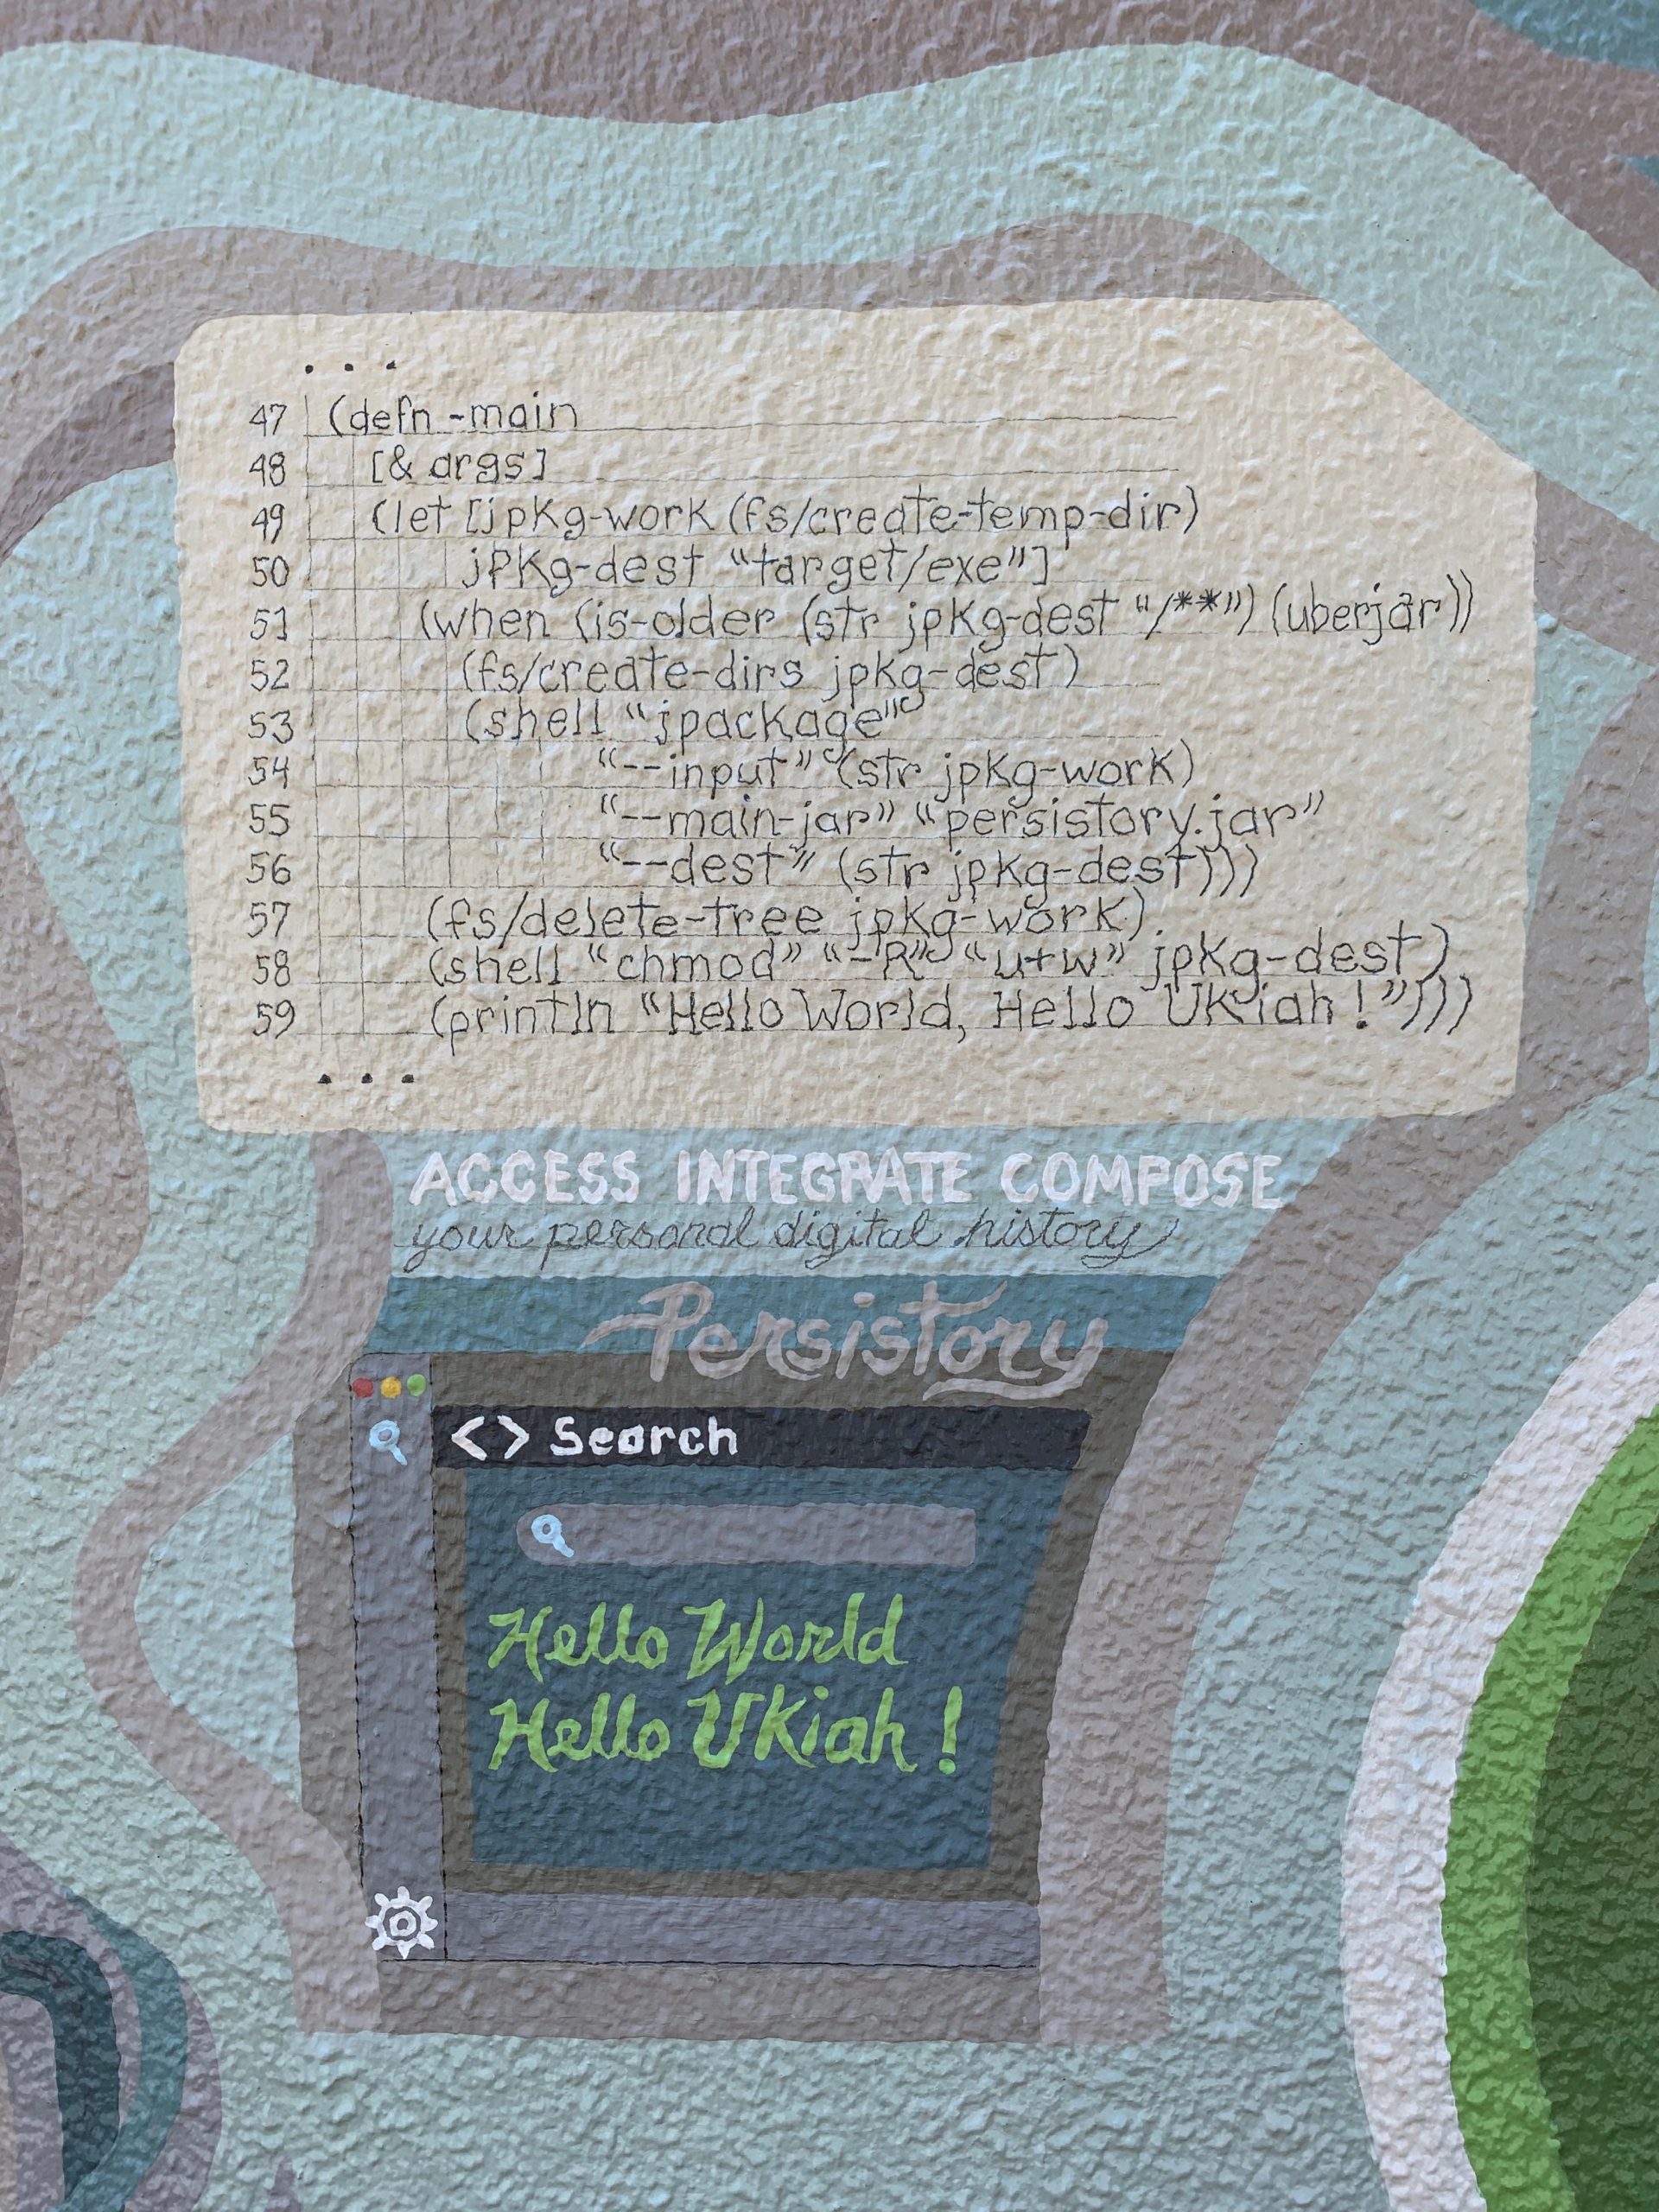 ...
47 (defn -main
48 [& args]
49 (let [jpkg-work (fs/create-temp-dir)
50 jpkg-dest "target/exe"]
51 (when (is-older (str jpkg-dest "/**") (uberjar))
52 (fs/create-dirs jpkg-dest)
53 (shell "jpackage"
54 "--input" (str jpkg-work)
55 "--main-jar" "persistory.jar"
56 "--dest" (str jpkg-dest)))
57 (fs/delete-tree jpkg-work)
58 (shell "chmod" "-R" "u+w" jpkg-dest)
59 (println "Hello World, Hello Ukiah!")))
...
ACCESS INTEGRATE COMPOSE
your personal digital history
Persistory
<> Search
Hello World
Hello Ukiah!